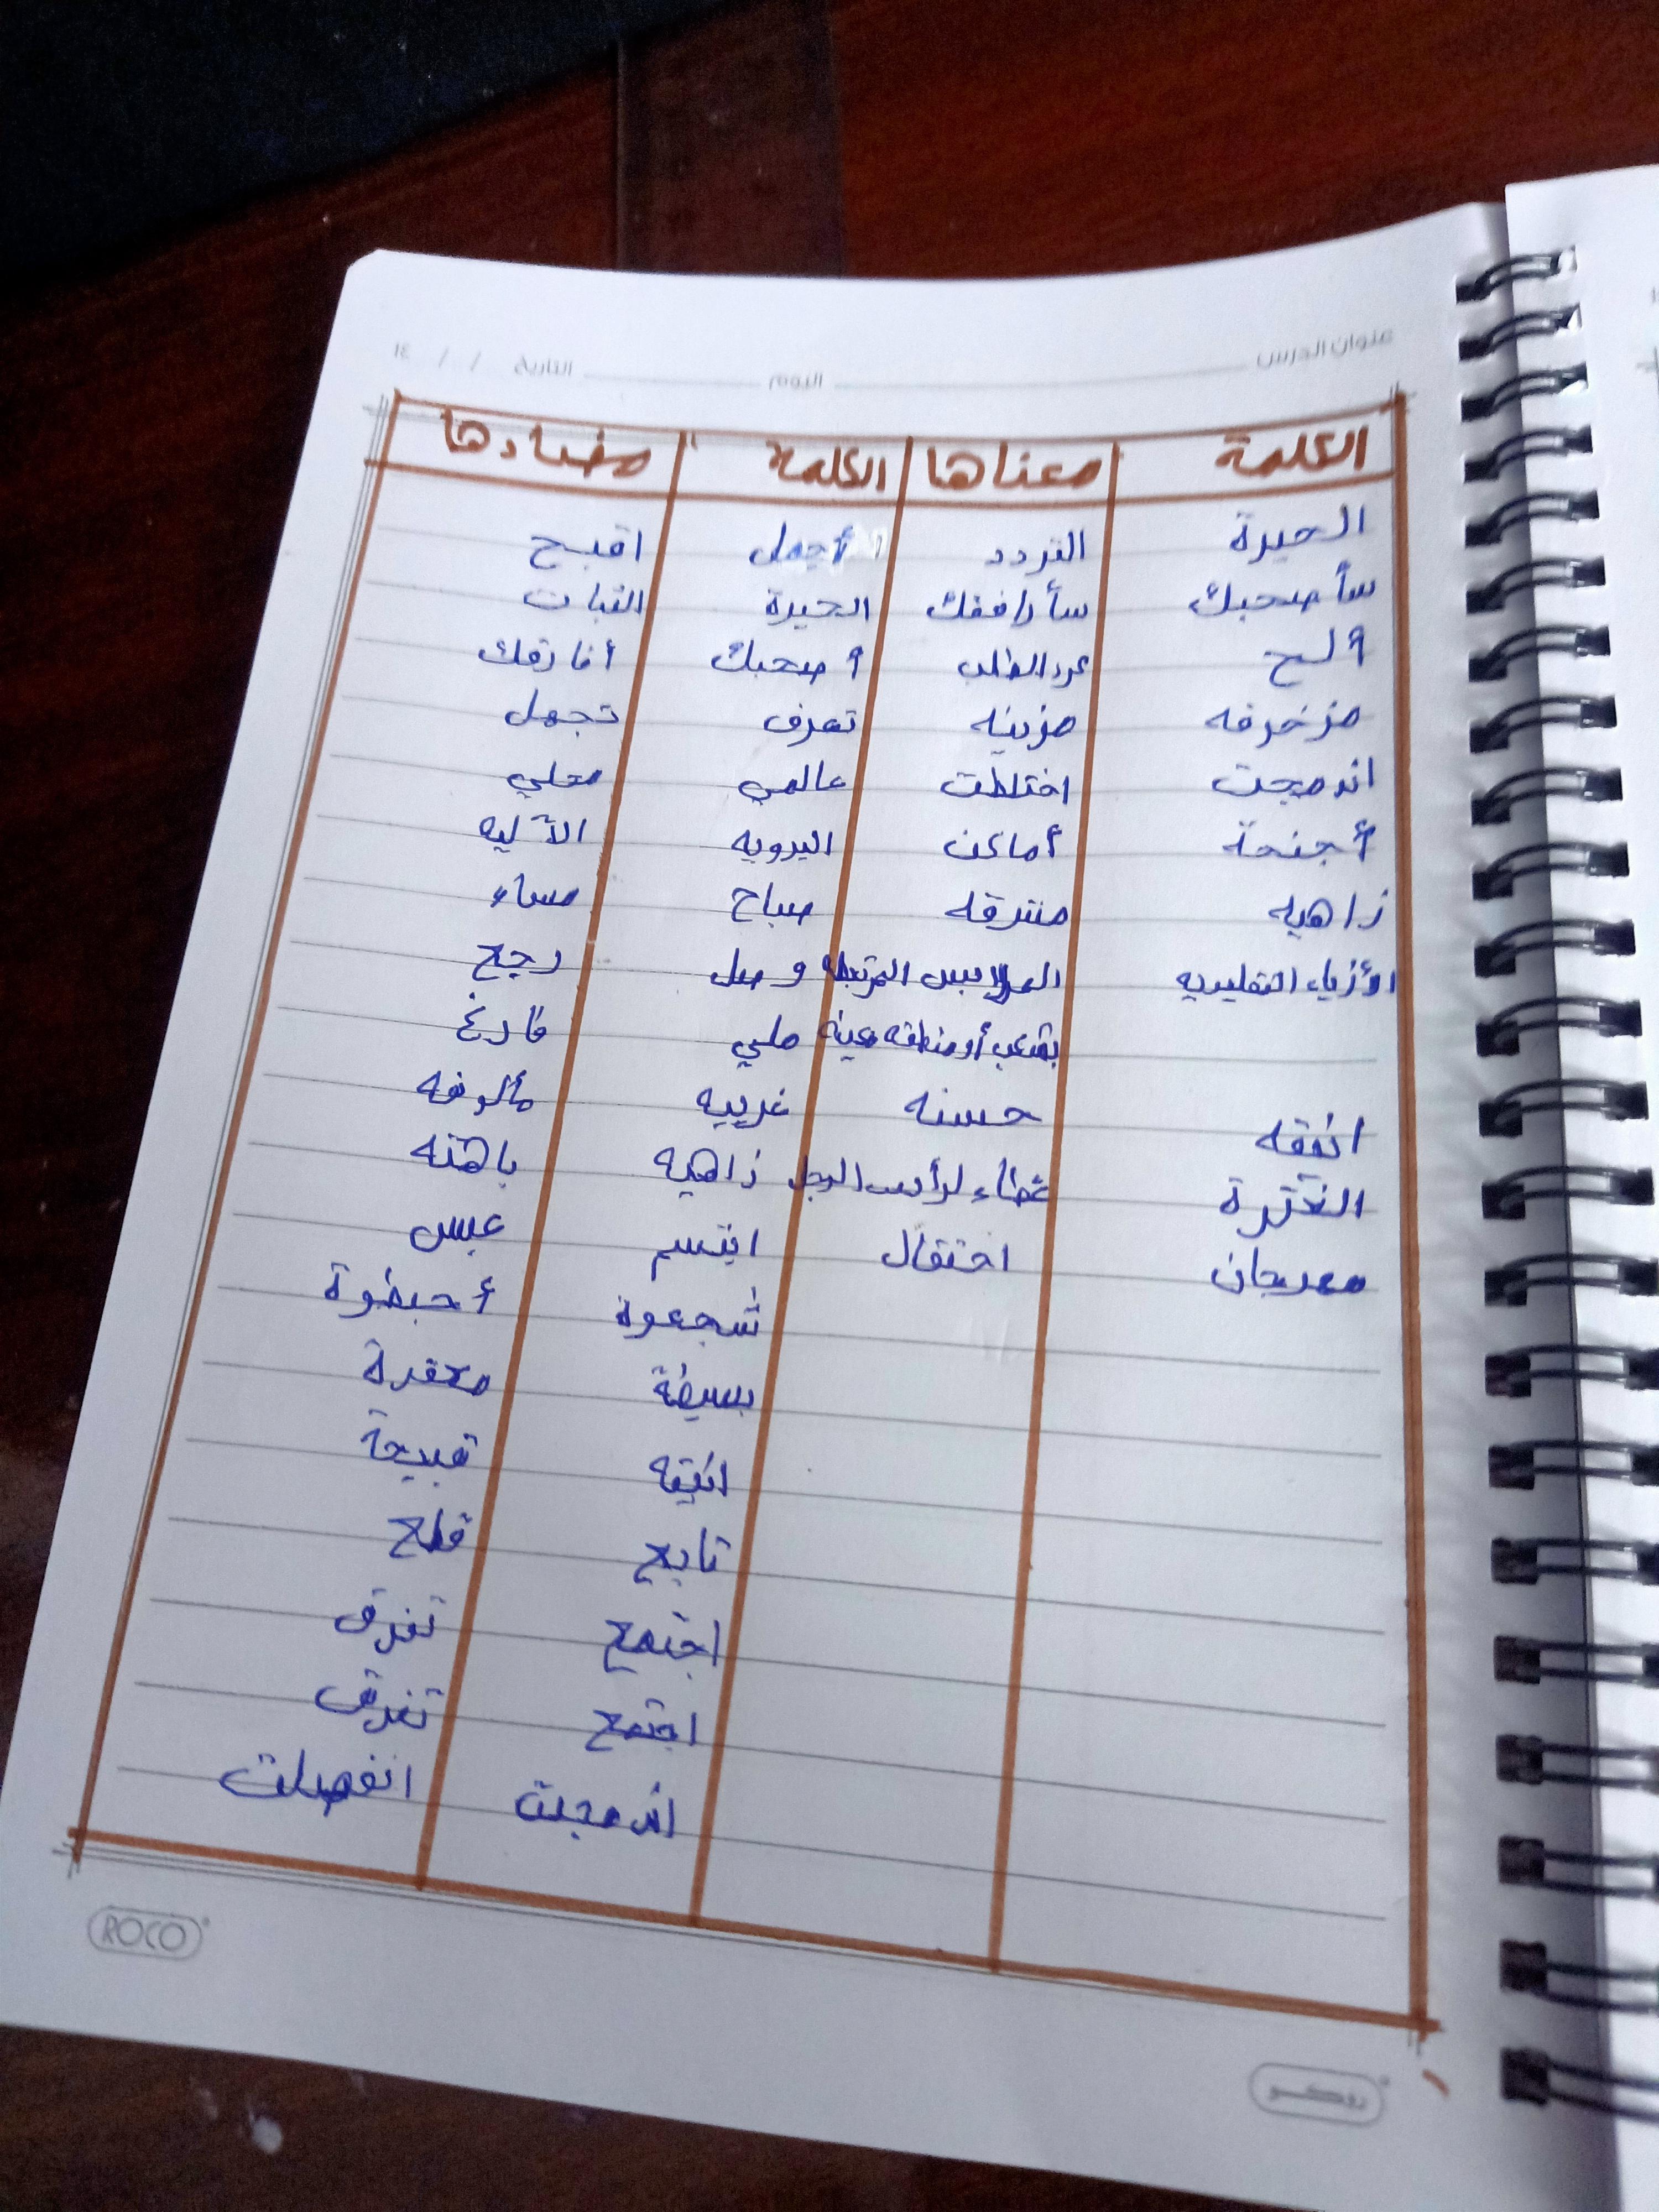 عنوان الدرس اليوم التاريخ / / ١٤
الكلمة معناها الكلمة مضادها
الحيرة التردد أجمل اقبح
سأصحبك سأرافقك الحيرة الثبات
ألح كرر الطلب أصحبك أفارقك
مزخرفه مزينه تعرف تجهل
اندمجت اختلطت عالمي محلي
أجنحة أماكن اليدويه الآليه
زاهيه مشرقه صباح مساء
الأزياء التقليديه الملابس المرتبطه وصل رجع
بشعب أو منطقه معينه ملي فارغ
انيقه حسنه غريبه مألوفه
الغترة غطاء لرأس الرجل زاهيه باهته
مهرجان احتفال ابتسم عبس
شجعوة أحبطوة
بسيطة معقدة
انيقه قبيحة
تابع قطع
اجتمع تفرق
اجتمع تفرق
اندمجت انفصلت
ROCO روكو